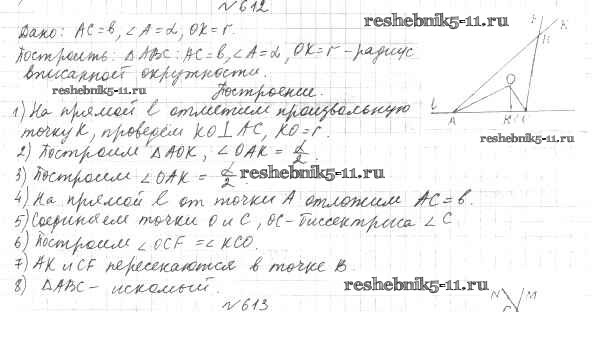 №612
Дано: AC=в, ∠A=α, OK=r.
Построить: △ABC: AC=в, ∠A=α, OK=r - радиус
вписанной окружности.
Построение.
1) На прямой l отметим произвольную
точку K, проведём KO⊥AC, KO=r.
2) Построим △AOK, ∠OAK = α/2.
3) Построим ∠OAK = α/2.
4) На прямой l от точки A отложим AC=в.
5) Соединяем точки O и C, OC-биссектриса ∠C.
6) Построим ∠OCF = ∠KCO.
7) AK и CF пересекаются в точке B.
8) △ABC - искомый.
№613
reshebnik5-11.ru
reshebnik5-11.ru
reshebnik5-11.ru
reshebnik5-11.ru
reshebnik5-11.ru
F
K
B
O
l
A
C
N
M